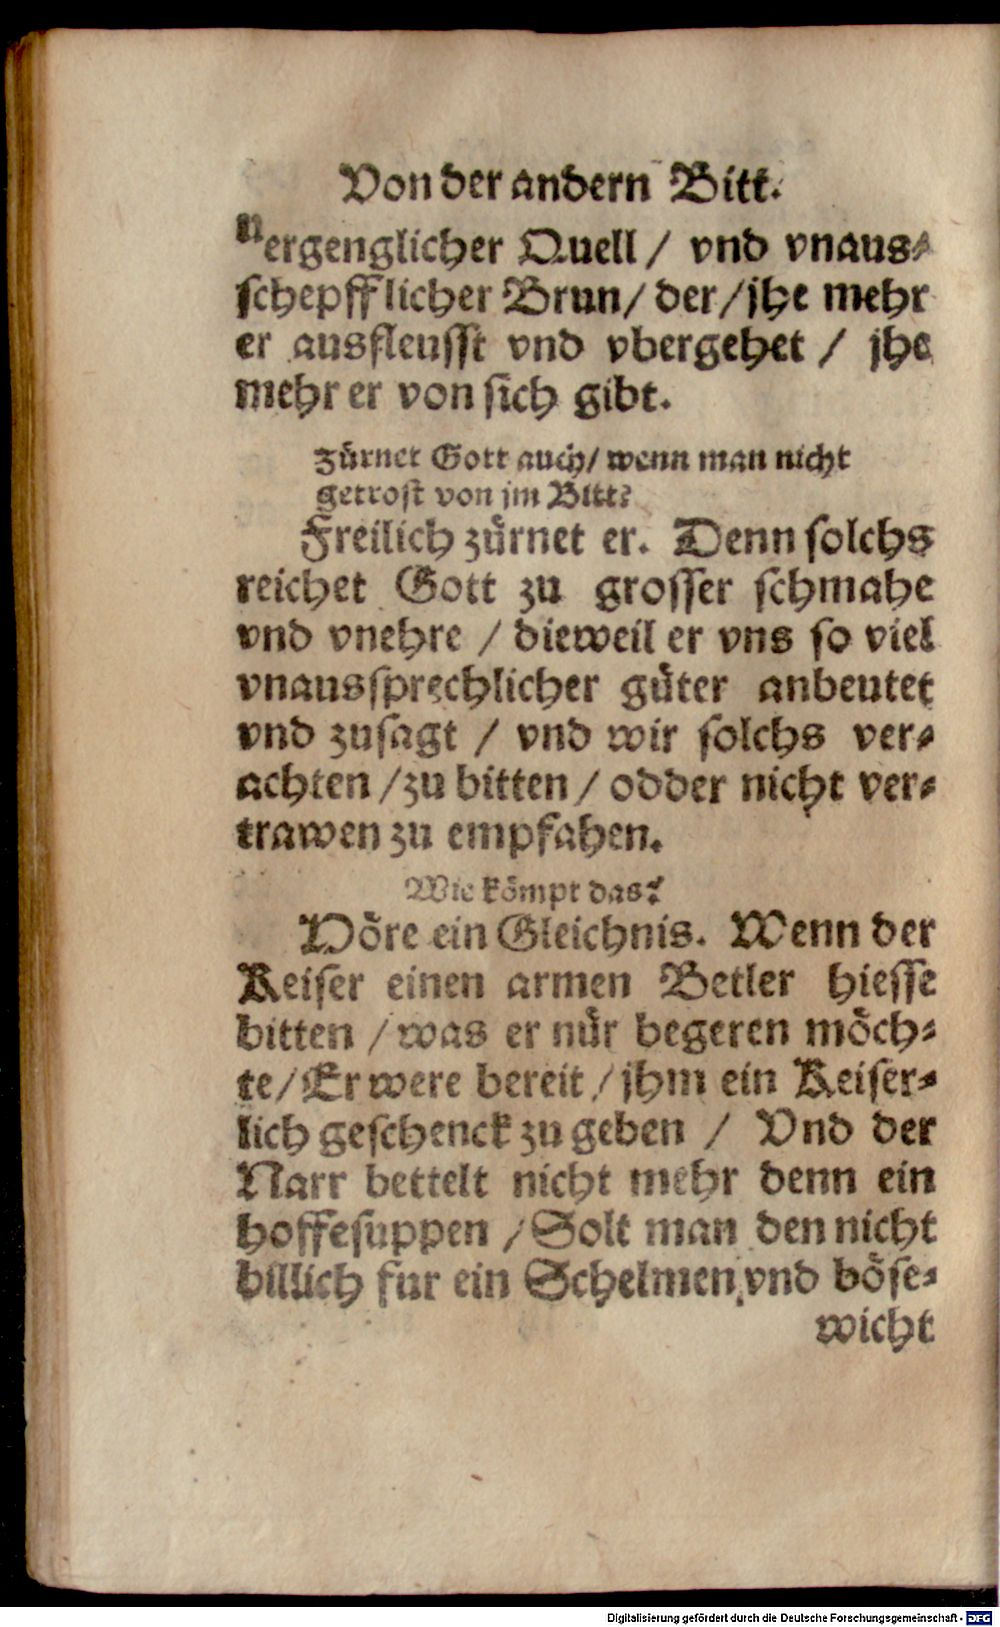 Von der andern Bitt.
vergenglicher Quell / vnd vnaus-
schepfflicher Brun / der / jhe mehr
er ausfleusst vnd vbergehet / jhe
mehr er von sich gibt.
Zürnet Gott auch / wenn man nicht
getrost von jm Bitt?
Freilich zürnet er. Denn solchs
reichet Gott zu grosser schmahe
vnd vnehre / dieweil er vns so viel
vnaussprechlicher güter anbeutet
vnd zusagt / vnd wir solchs ver-
achten / zu bitten / odder nicht ver-
trawen zu empfahen.
Wie kömpt das?
Höre ein Gleichnis. Wenn der
Keiser einen armen Betler hiesse
bitten / was er nür begeren möch-
te / Er were bereit / jhm ein Keiser-
lich geschenck zu geben / Vnd der
Narr bettelt nicht mehr denn ein
hoffesuppen / Solt man den nicht
billich fur ein Schelmen vnd böse-
wicht
Digitalisierung gefördert durch die Deutsche Forschungsgemeinschaft - DFG